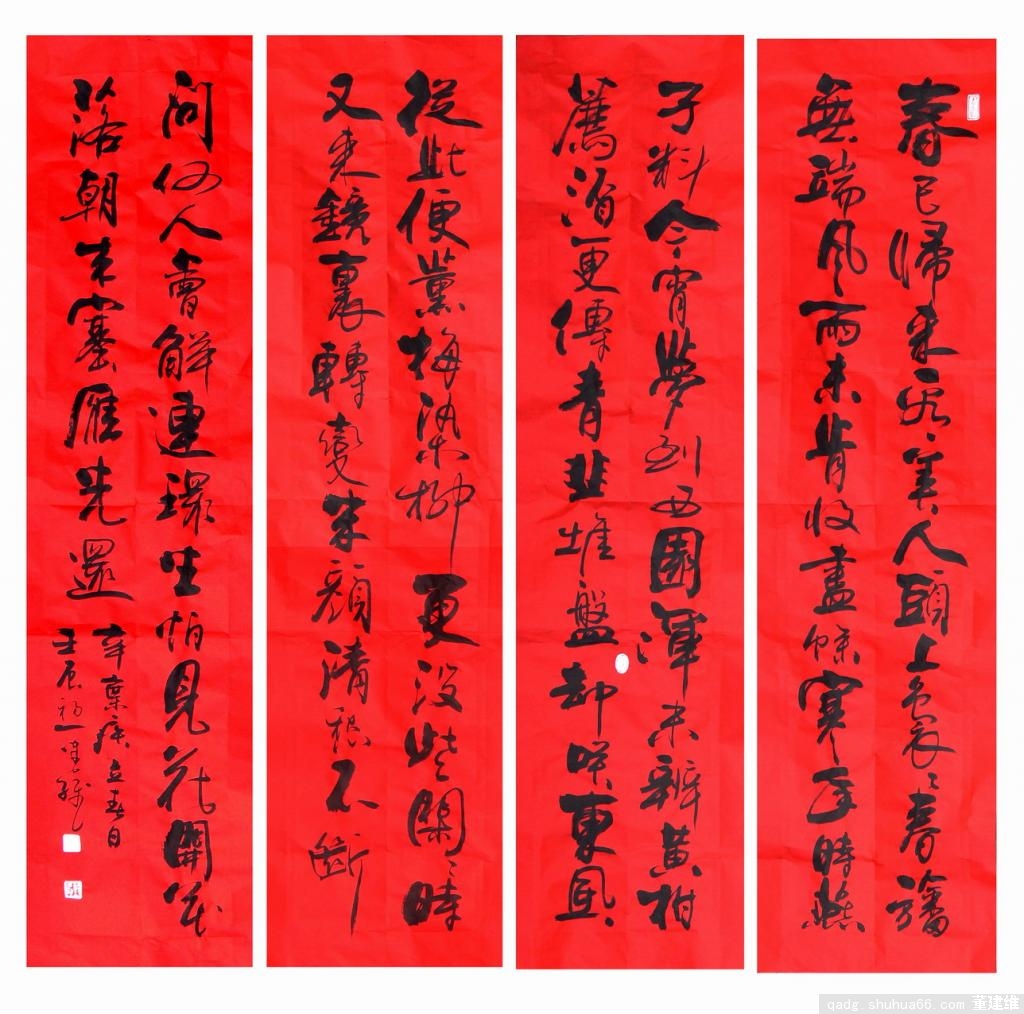 春已歸來看美人頭上裊々春旛
無端風雨未肯收盡餘寒年時燕
子料今宵夢到西園渾未辦黃柑
薦酒更傳青韭堆盤却笑東風
從此便薰梅染柳更沒些閑々時
又來鏡裏轉變朱顏清愁不斷
問何人會解連環生怕見花開花
落朝來塞雁先還
辛棄疾立春日
壬辰初一
qadg.shuhua66.com 董建维